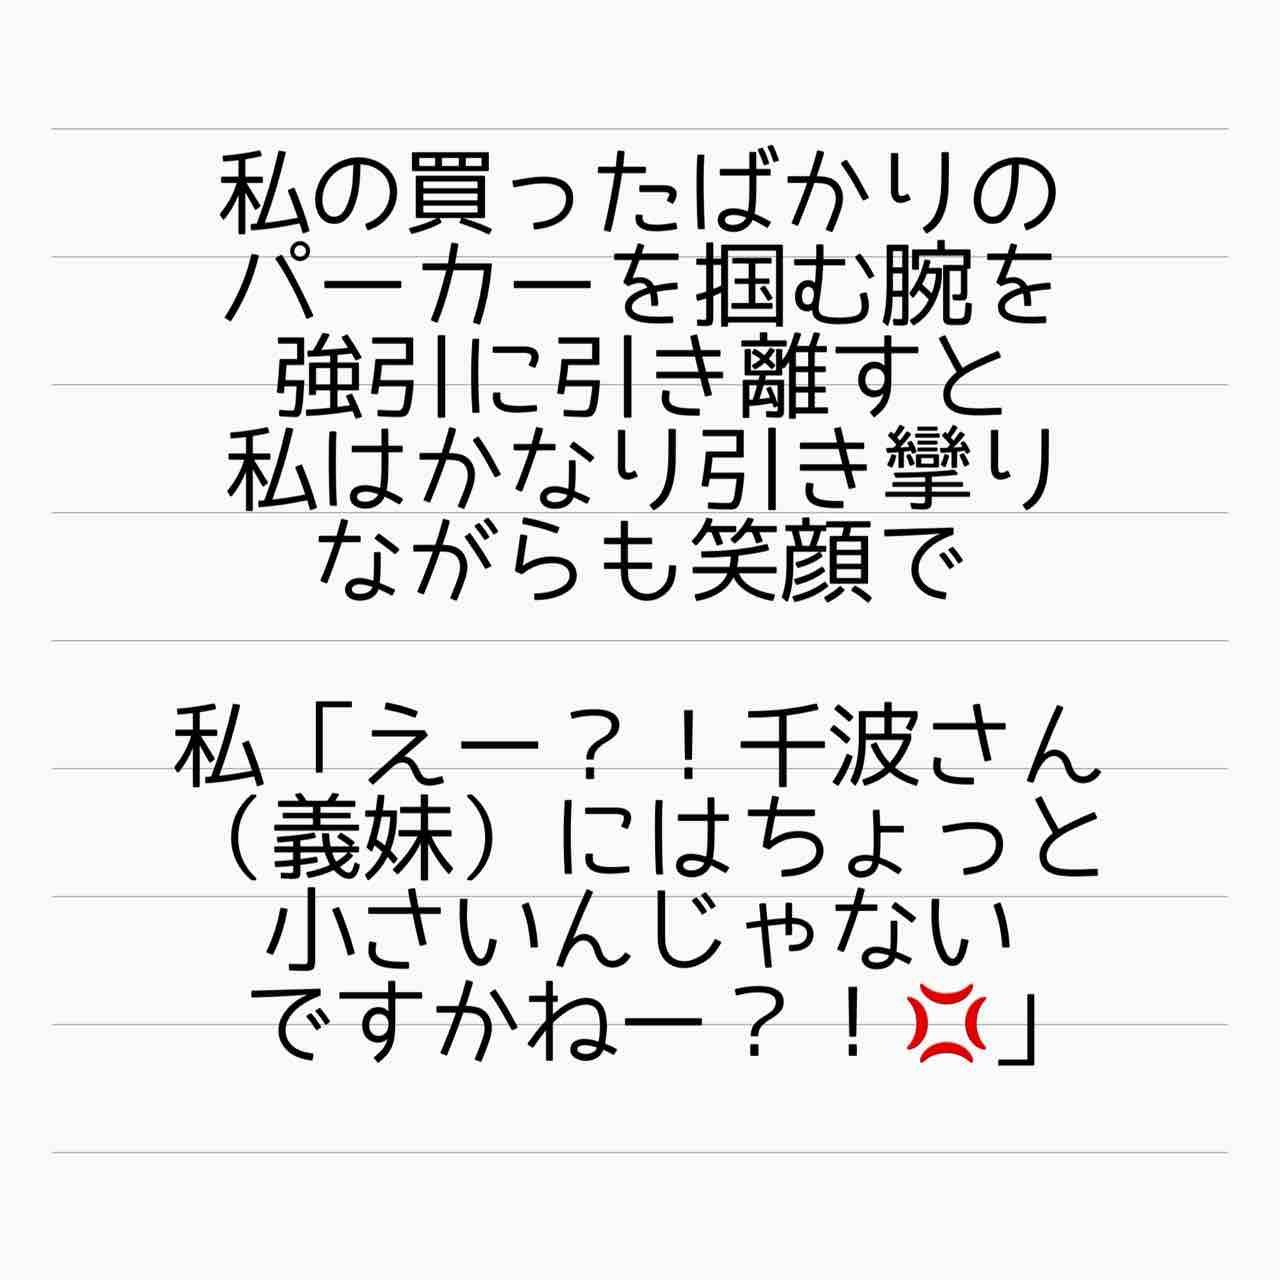 私の買ったばかりの
パーカーを掴む腕を
強引に引き離すと
私はかなり引き攣り
ながらも笑顔で
私「えー？！千波さん
（義妹）にはちょっと
小さいんじゃない
ですかねー？！💢」